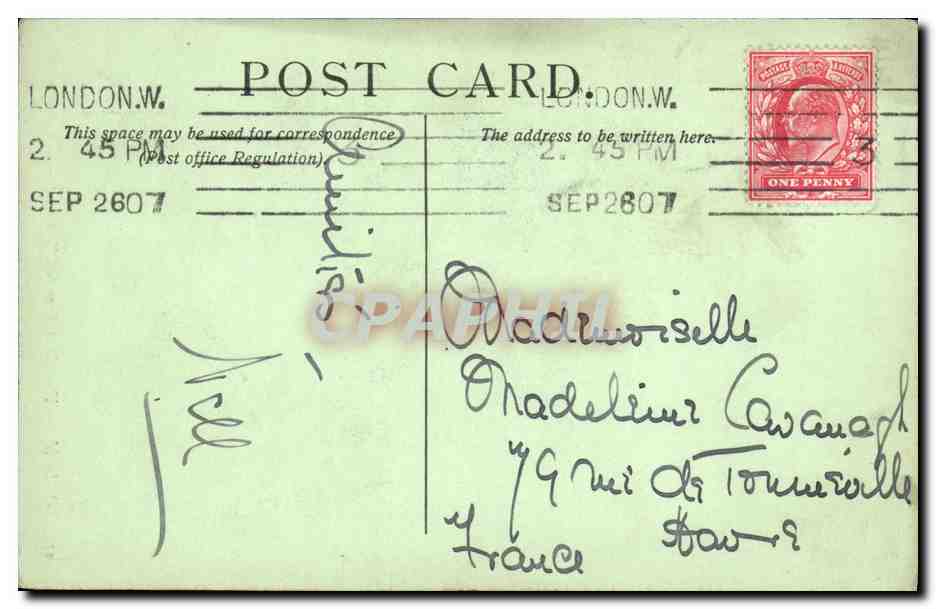 POST CARD.
LONDON.W.
2. 45 PM
SEP 26 07
LONDON.W.
2. 45 PM
SEP 26 07
3
This space may be used for correspondence
(Post office Regulation).
The address to be written here.
POSTAGE REVENUE
ONE PENNY
Amitiés
Nell
CPAPHIL
Mademoiselle
Madeleine Cavanagh
79 rue de Tourneville
Havre
France